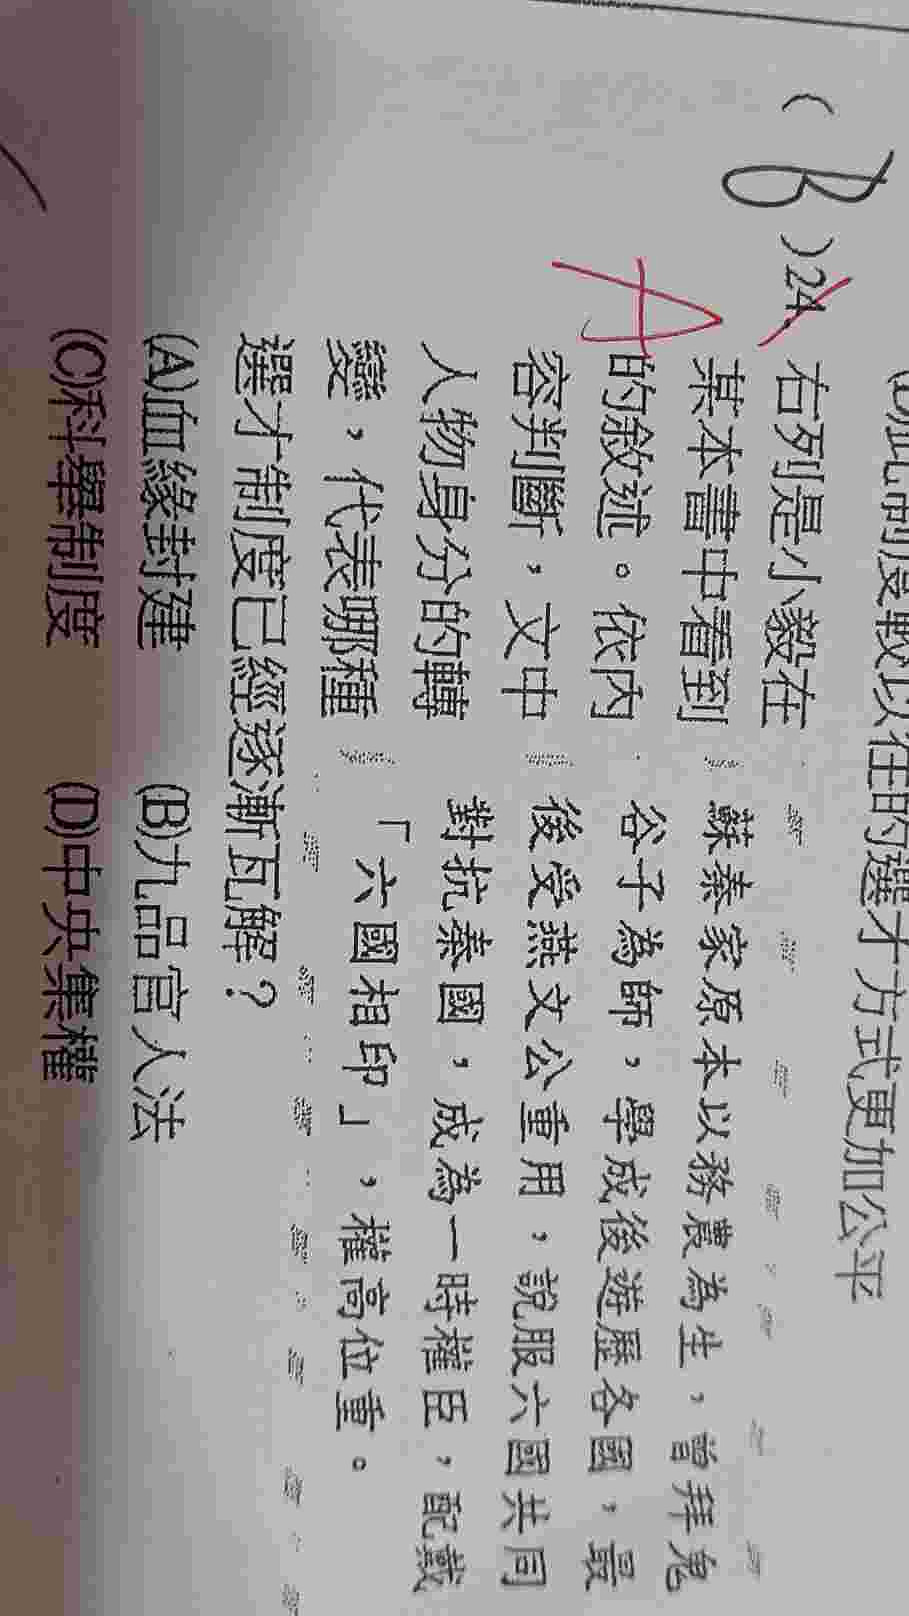 此制度較以往的選才方式更加公平
( B ) 24.
A
右列是小毅在
某本書中看到
的敘述。依內
容判斷，文中
人物身分的轉
變，代表哪種
選才制度已經逐漸瓦解？
蘇秦家原本以務農為生，曾拜鬼
谷子為師，學成後遊歷各國，最
後受燕文公重用，說服六國共同
對抗秦國，成為一時權臣，配戴
「六國相印」，權高位重。
(A)血緣封建 (B)九品官人法
(C)科舉制度 (D)中央集權